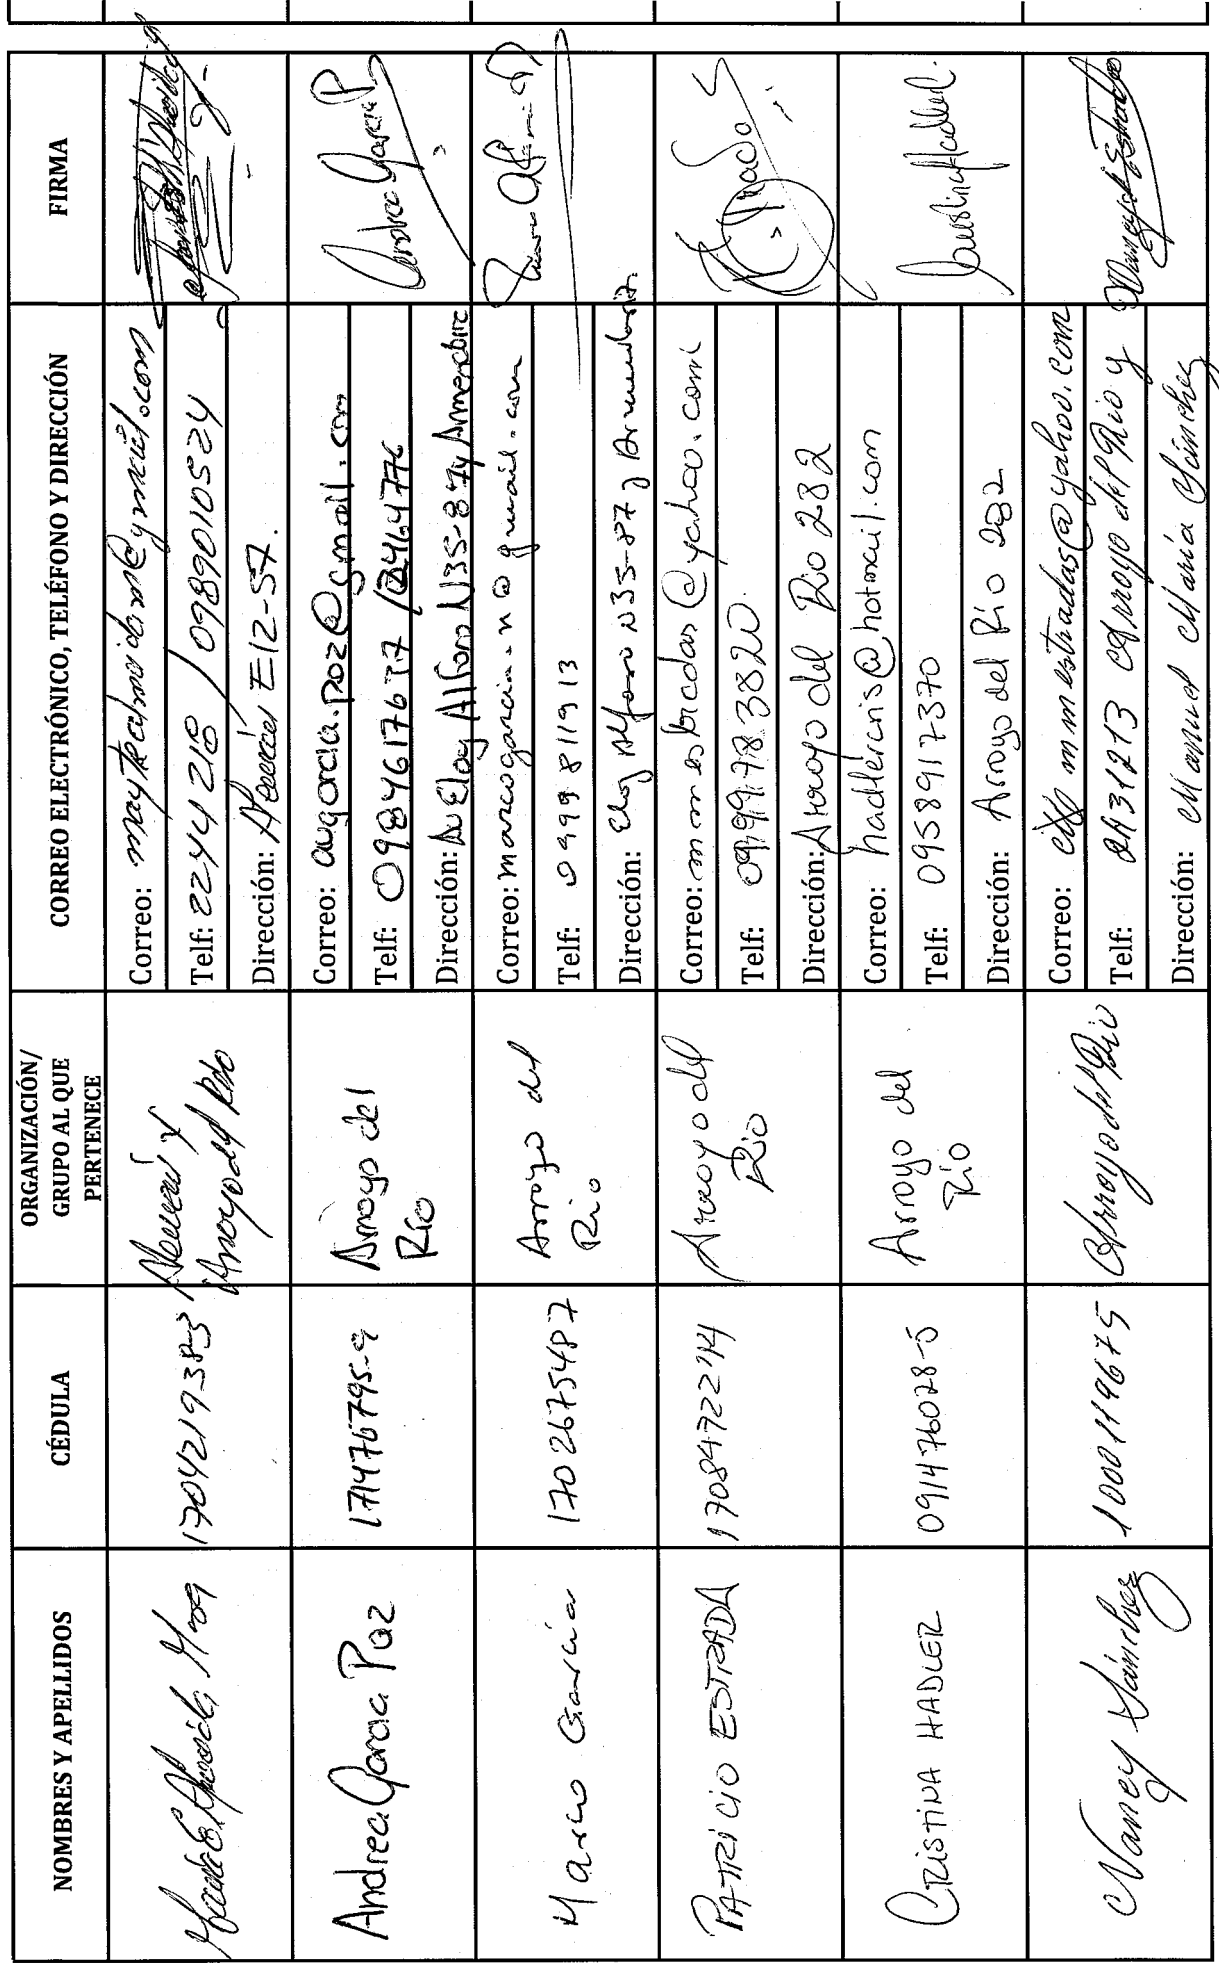 NOMBRES Y APELLIDOS
CÉDULA
ORGANIZACIÓN/
GRUPO AL QUE
PERTENECE
CORREO ELECTRÓNICO, TELÉFONO Y DIRECCIÓN
FIRMA
1704219383
y
Arroyo del Río
Correo:
Telf: 2244218 / 0989010524
Dirección: E12-57.
Andrea Garcia Paz
171476795-9
Arroyo del
Río
Correo: augarcia.paz@gmail.com
Telf: 0984617677 / 2464776
Dirección: Av Eloy Alfaro N35-87 y
Andrea Garcia P.
Marco García
1702675487
Arroyo del
Río
Correo: marcogarcia.n@gmail.com
Telf: 0999811913
Dirección: Eloy Alfaro N35-87 y
PATRICIO ESTRADA
1708472244
Arroyo del
Río
Correo: @yahoo.com
Telf: 0999783820
Dirección: Arroyo del Río 282
CRISTINA HADLER
091476028-5
Arroyo del
Río
Correo: hadlercris@hotmail.com
Telf: 0958917370
Dirección: Arroyo del Río 282
Nancy Sánchez
1000119675
Arroyo del Río
Correo: mmestradas@yahoo.com
Telf: 2431213 Arroyo del Río y
Dirección: Manuel María Sánchez